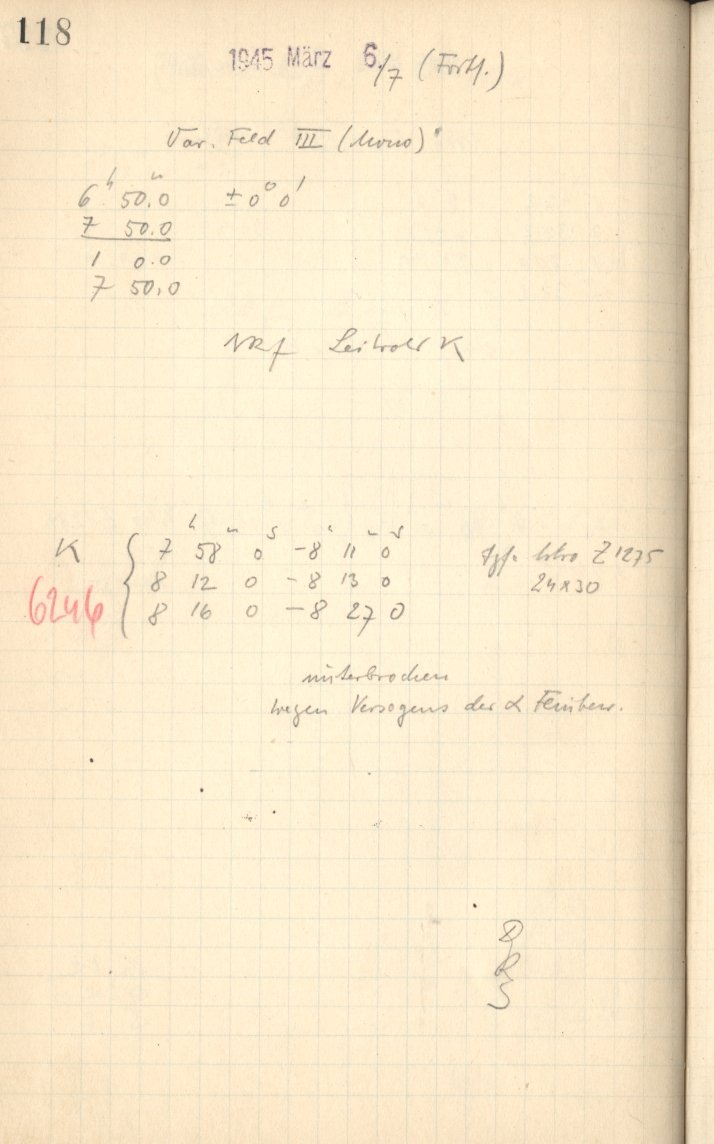 118
1945 März 6./7 (Forts.)
Var. Feld III (Mono)
6 h 50,0 m ± 0° 0'
7 50.0
1 0.0
7 50,0
K
K { 7 h 58 m 0 s -8 h 11 m 0 s Z 1275
8 12 0 -8 13 0 24x30
6246 8 16 0 -8 27 0
unterbrochen
wegen Versagens der α Feinbew.